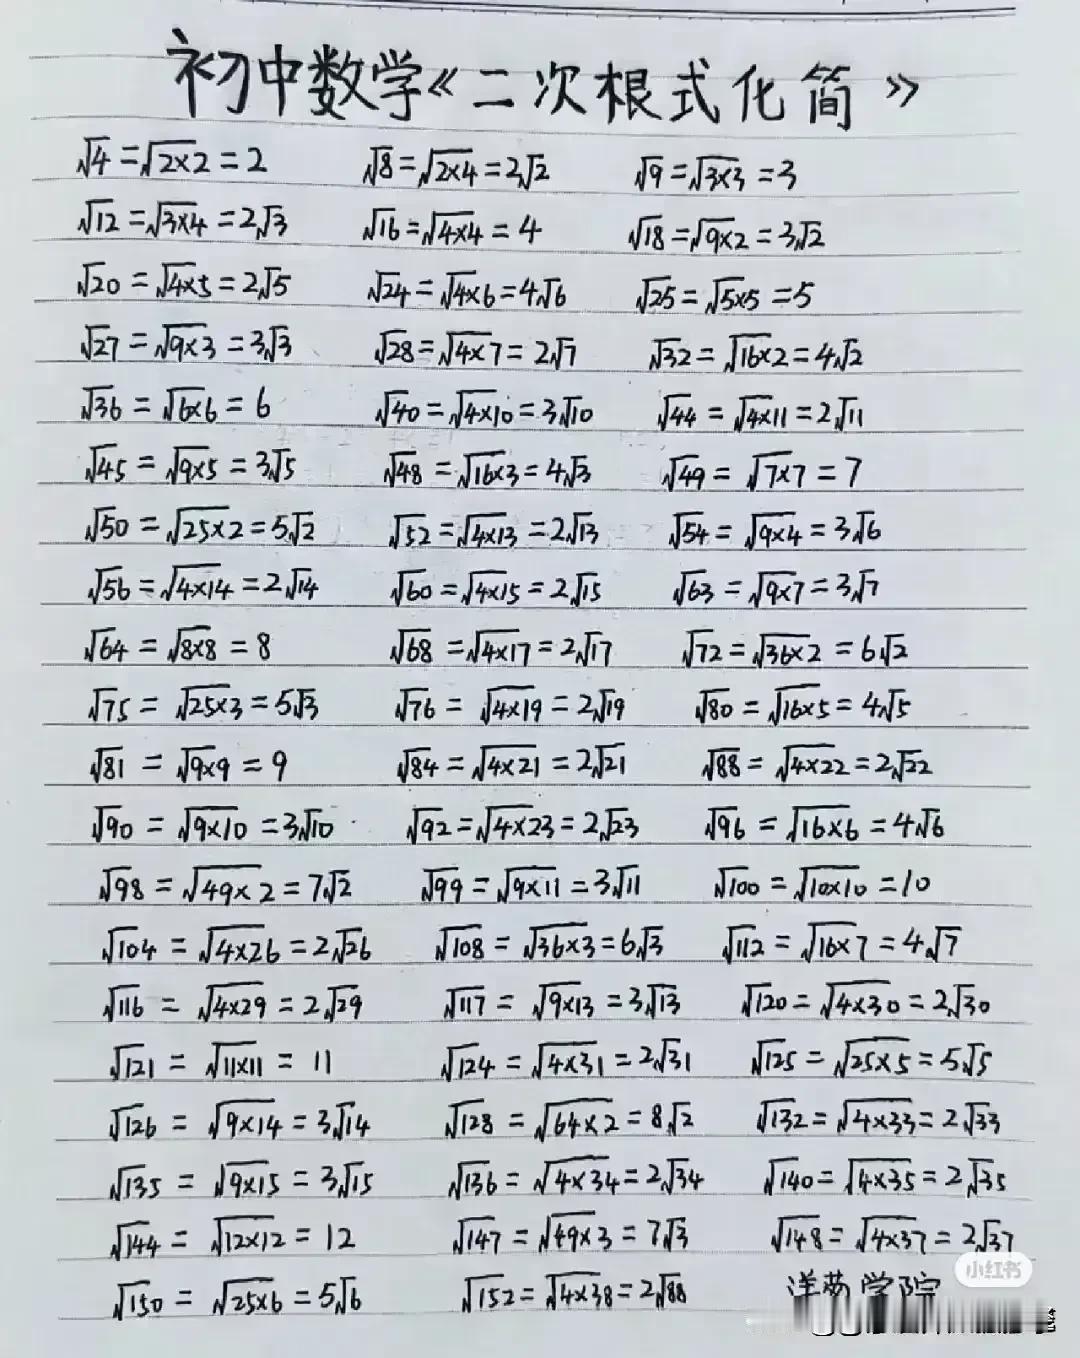 初中数学《二次根式化简》
√4=√2×2=2 √8=√2×4=2√2 √9=√3×3=3
√12=√3×4=2√3 √16=√4×4=4 √18=√9×2=3√2
√20=√4×5=2√5 √24=√4×6=4√6 √25=√5×5=5
√27=√9×3=3√3 √28=√4×7=2√7 √32=√16×2=4√2
√36=√6×6=6 √40=√4×10=3√10 √44=√4×11=2√11
√45=√9×5=3√5 √48=√16×3=4√3 √49=√7×7=7
√50=√25×2=5√2 √52=√4×13=2√13 √54=√9×4=3√6
√56=√4×14=2√14 √60=√4×15=2√15 √63=√9×7=3√7
√64=√8×8=8 √68=√4×17=2√17 √72=√36×2=6√2
√75=√25×3=5√3 √76=√4×19=2√19 √80=√16×5=4√5
√81=√9×9=9 √84=√4×21=2√21 √88=√4×22=2√22
√90=√9×10=3√10 √92=√4×23=2√23 √96=√16×6=4√6
√98=√49×2=7√2 √99=√9×11=3√11 √100=√10×10=10
√104=√4×26=2√26 √108=√36×3=6√3 √112=√16×7=4√7
√116=√4×29=2√29 √117=√9×13=3√13 √120=√4×30=2√30
√121=√11×11=11 √124=√4×31=2√31 √125=√25×5=5√5
√126=√9×14=3√14 √128=√64×2=8√2 √132=√4×33=2√33
√135=√9×15=3√15 √136=√4×34=2√34 √140=√4×35=2√35
√144=√12×12=12 √147=√49×3=7√3 √148=√4×37=2√37
√150=√25×6=5√6 √152=√4×38=2√88
小红书
学院